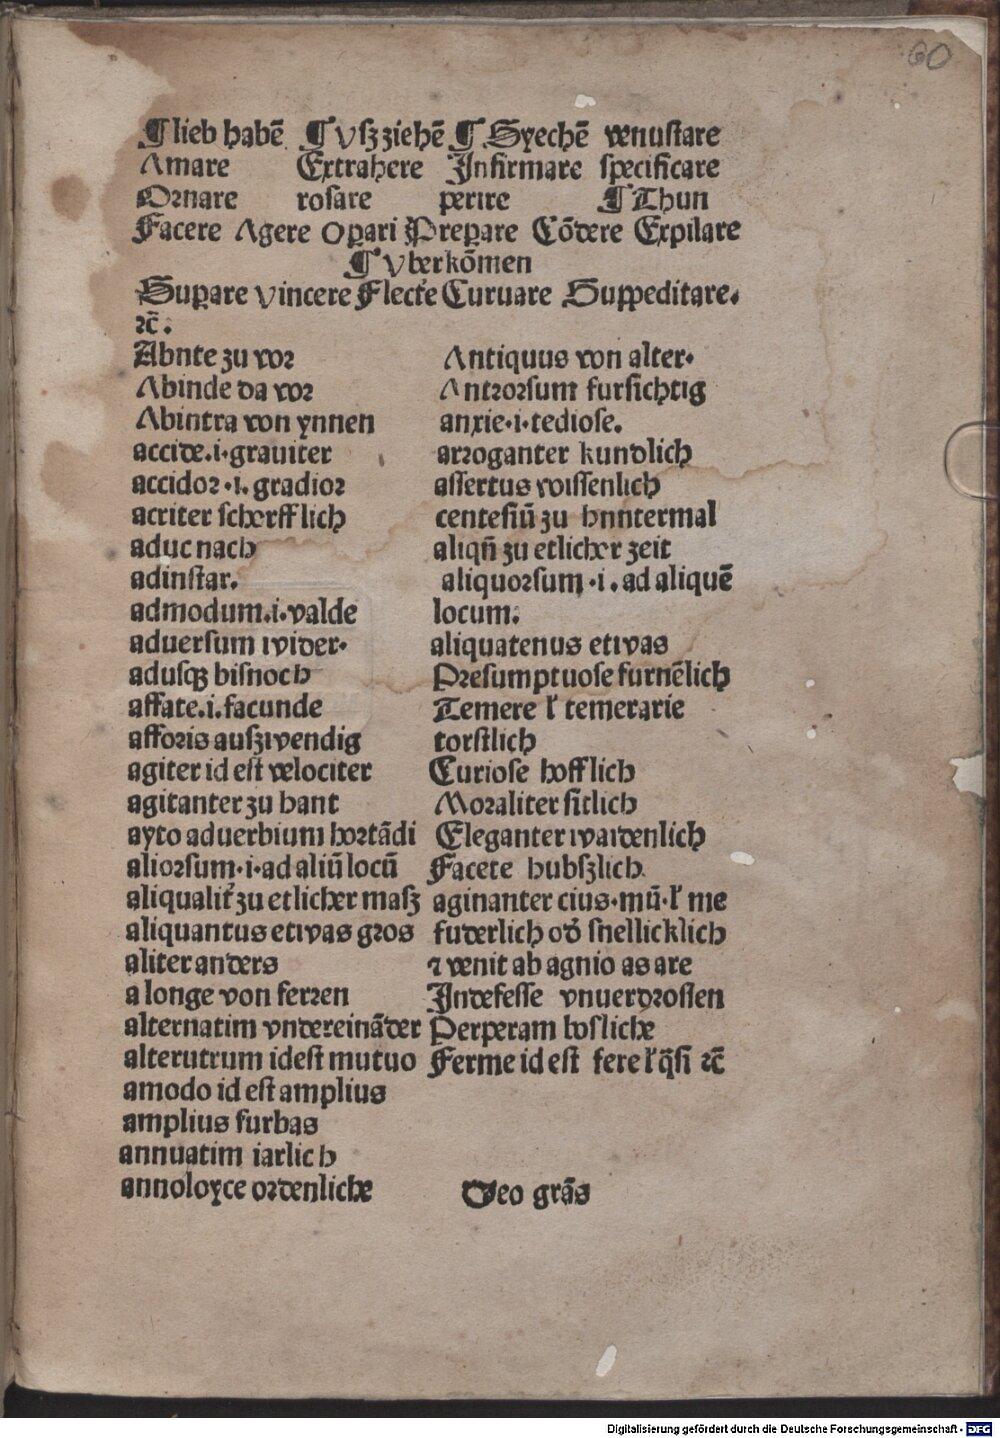 60
¶ lieb habē ¶ Vſzziehē ¶ Syechē venuſtare
Amare Extrahere Infirmare ſpecificare
Ornare roſare perire ¶ Thun
Facere Agere Opari Prepare Cōdere Expilare
¶ Vberkōmen
Supare vincere Flecte Curuare Suppeditare.
ꝛc̄.
Abnte zu vor
Abinde da vor
Abintra von ynnen
accide.i.grauiter
accidor.i.gradior
acriter ſcherfflich
aduc nach
adinſtar.
admodum.i.valde
aduerſum wider.
aduſqꝫ biſnoch
affate.i.facunde
afforis auſzwendig
agiter id eſt velociter
agitanter zu hant
ayto aduerbium hortādi
aliorſum.i.ad aliū locū
aliqualit zu etlicher maſz
aliquantus etwas gros
aliter anders
a longe von ferren
alternatim vndereināder
alterutrum idest mutuo
amodo id eſt amplius
amplius furbas
annuatim iarlich
annoloyce ordenliche
Antiquus von alter.
Antrorſum furſichtig
anxie.i.tedioſe.
arroganter kundlich
aſſertus wiſſenlich
centeſiū zu hnntermal
aliqn̄ zu etlicher zeit
aliquorſum.i.ad aliquē
locum.
aliquatenus etwas
Preſumptuoſe furnēlich
Temere ł temerarie
torſtlich
Curioſe hofflich
Moraliter ſitlich
Eleganter waidenlich
Facete hubſzlich
aginanter cius.mū.ł me
fuderlich od ſnellicklich
⁊ venit ab agnio as are
Indefeſſe vnuerdroſſen
Perperam bosliche
Ferme id eſt fere ł q̄ſi ꝛc̄
Deo grās
Digitalisierung gefördert durch die Deutsche Forschungsgemeinschaft - DFG